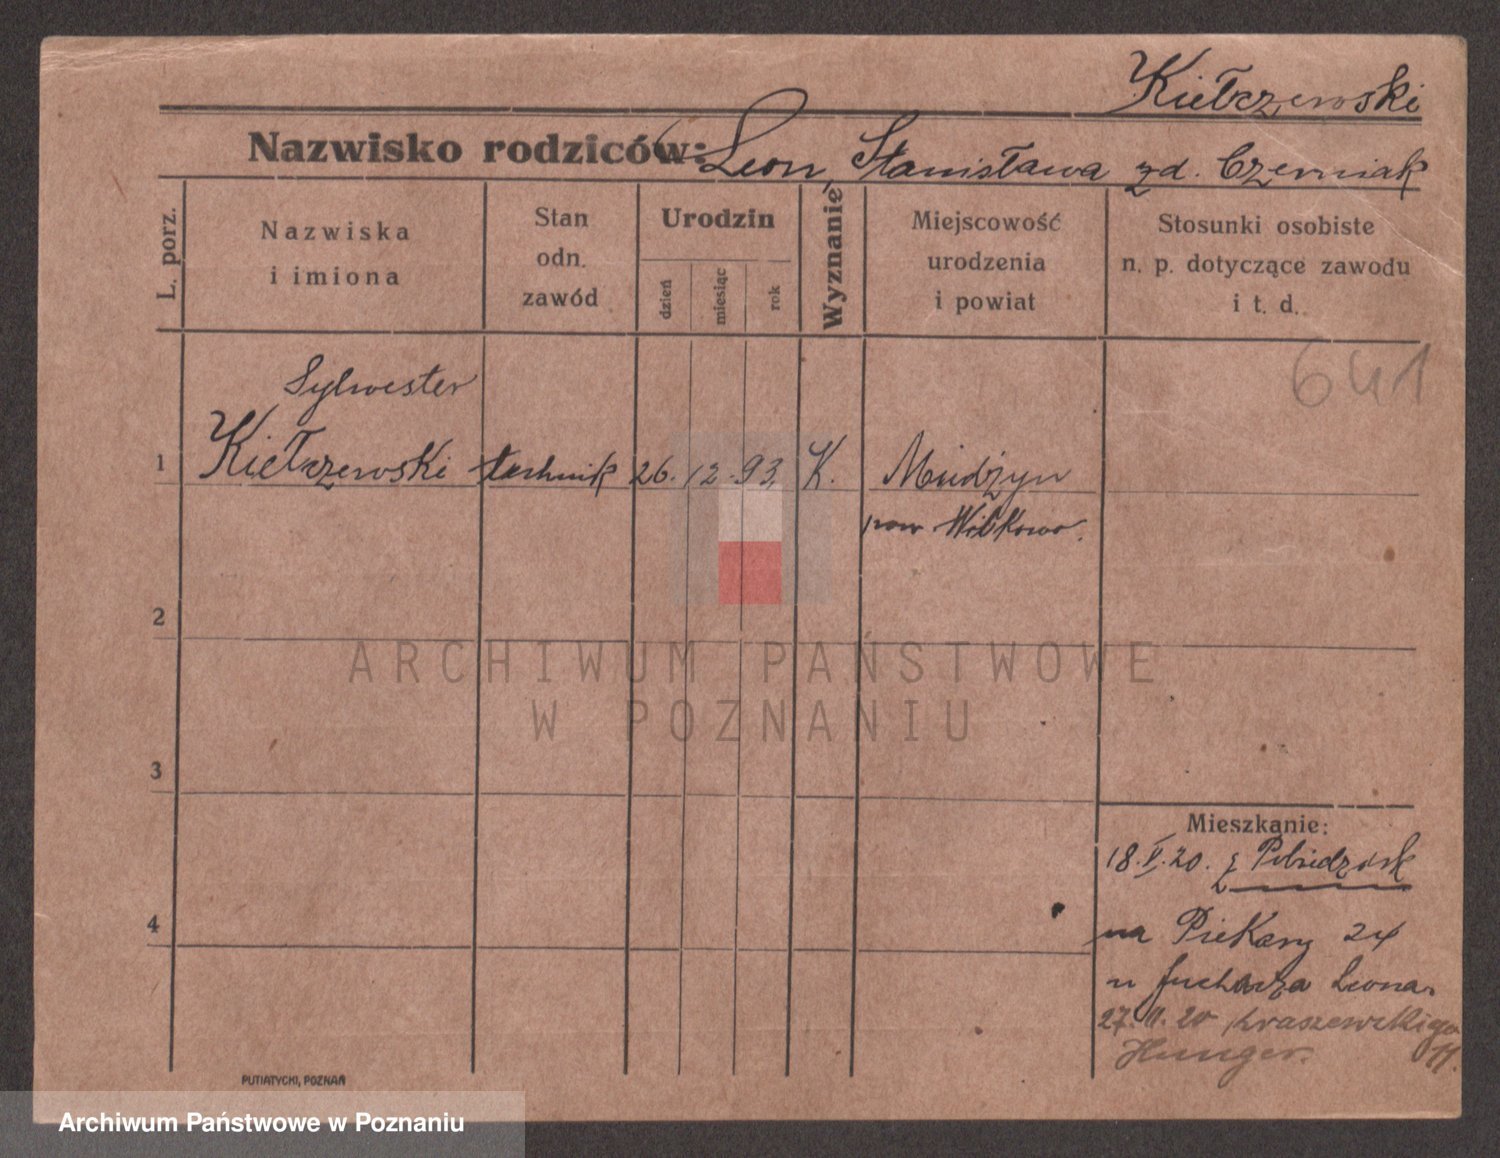 Kiełczewski
Nazwisko rodziców: Leon, Stanisława zd. Czerniak
L. porz.
Nazwiska
i imiona
Stan
odn.
zawód
Urodzin
dzień
miesiąc
rok
Wyznanie
Miejscowość
urodzenia
i powiat
Stosunki osobiste
n. p. dotyczące zawodu
i t. d.
641
Sylwester
1 Kiełczewski technik 26. 12. 93. K.
pow. Witkowo.
2
3
4
ARCHIWUM PAŃSTWOWE
W POZNANIU
Mieszkanie:
18.V.20. z
na Piekary 24
u Leona
27. 20 Kraszewskiego
11.
Hunger.
PUTIATYCKI, POZNAŃ
Archiwum Państwowe w Poznaniu